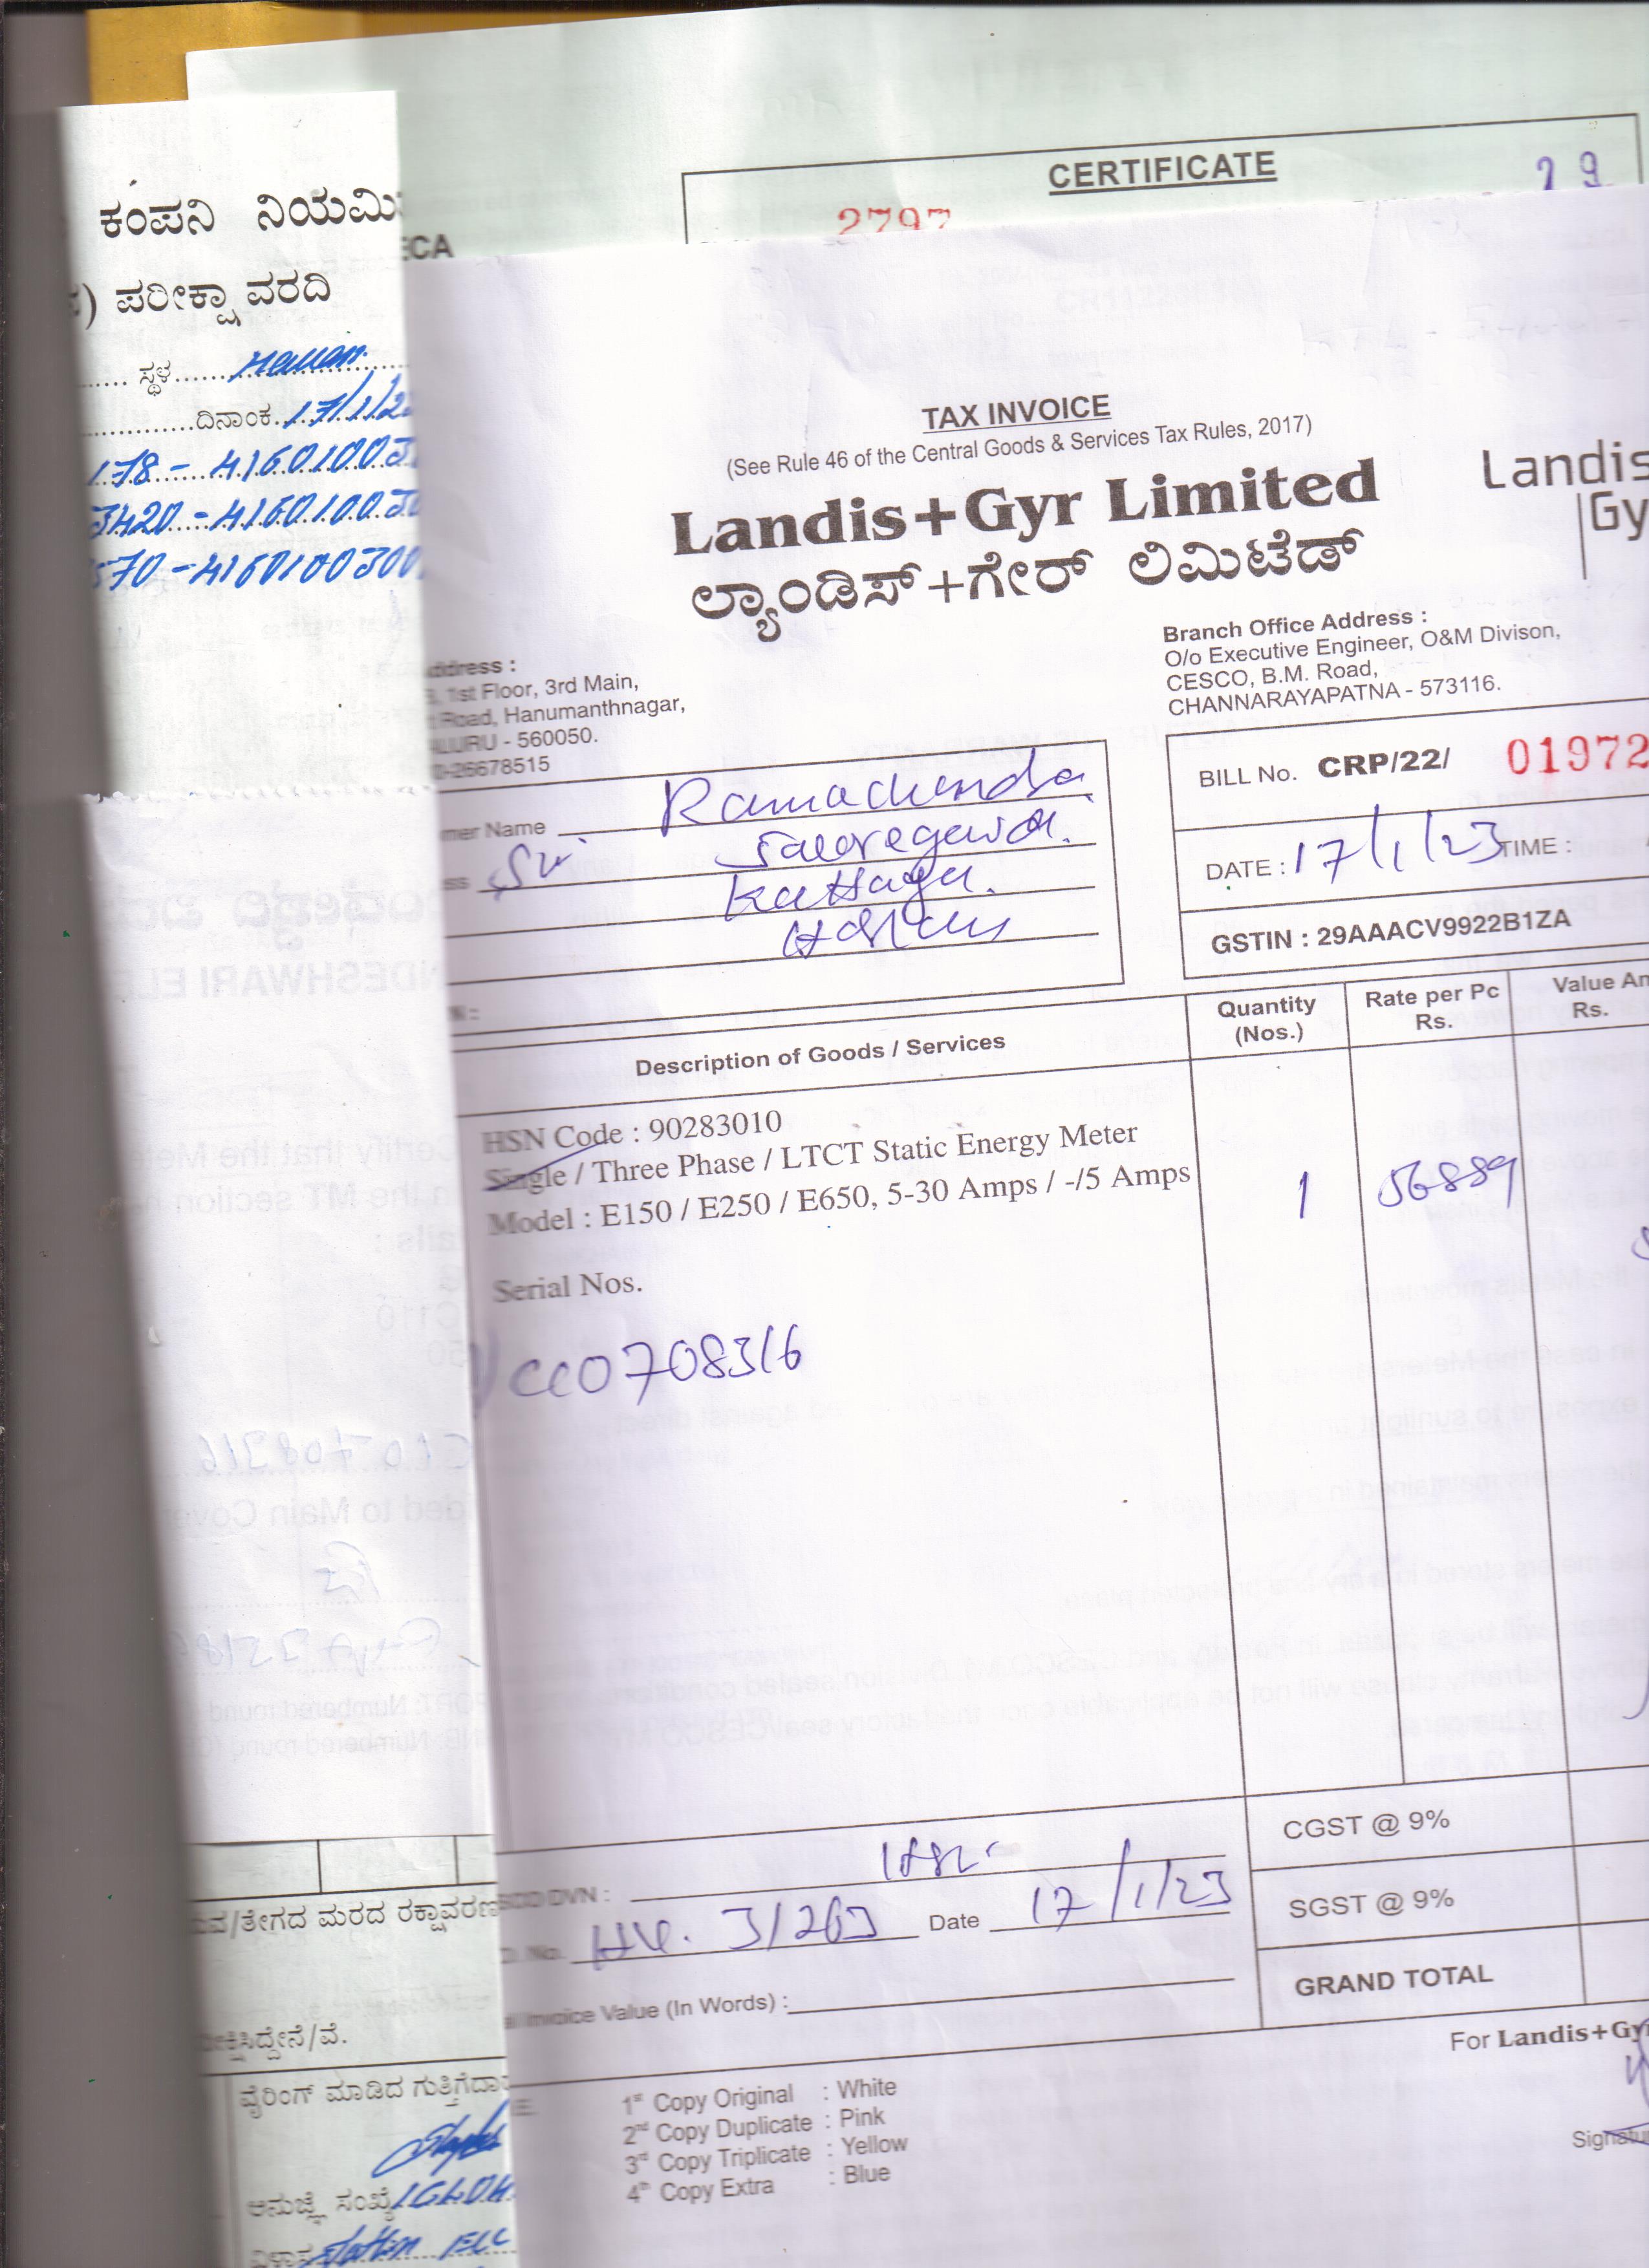 CERTIFICATE
2797
29
ECA
ಕಂಪನಿ ನಿಯಮಿ
) ಪರೀಕ್ಷಾ ವರದಿ
ಸ್ಥಳ
ದಿನಾಂಕ 17/1/2
178 - 41601003
3420 - 4160100
570 - 4160100300
TAX INVOICE
(See Rule 46 of the Central Goods & Services Tax Rules, 2017)
Landis+Gyr Limited
ಲ್ಯಾಂಡಿಸ್+ಗೇರ್ ಲಿಮಿಟೆಡ್
Landis
Gy
ddress :
1st Floor, 3rd Main,
Road, Hanumanthnagar,
LURU - 560050.
-26678515
Branch Office Address :
O/o Executive Engineer, O&M Divison,
CESCO, B.M. Road,
CHANNARAYAPATNA - 573116.
mer Name Ramachendra
ss Sri
Kattaya
BILL No. CRP/22/ 01972
DATE : 17/1/23 TIME :
GSTIN : 29AAACV9922B1ZA
N :
Description of Goods / Services
Quantity (Nos.)
Rate per Pc Rs.
Value Am Rs.
HSN Code : 90283010
Single / Three Phase / LTCT Static Energy Meter
Model : E150 / E250 / E650, 5-30 Amps / -/5 Amps
1
Serial Nos.
0708316
CGST @ 9%
SGST @ 9%
GRAND TOTAL
DVN :
No. 3/263 Date 17/1/23
Invoice Value (In Words) :
For Landis+Gyr
Signatu
1st Copy Original : White
2nd Copy Duplicate : Pink
3rd Copy Triplicate : Yellow
4th Copy Extra : Blue
ವ/ತೇಗದ ಮರದ ರಕ್ಷಾವರಣ
ೀಕ್ಷಿಸಿದ್ದೇನೆ/ವೆ.
ವೈರಿಂಗ್ ಮಾಡಿದ ಗುತ್ತಿಗೆದಾ
ಅನುಜ್ಞೆ ಸಂಖ್ಯೆ
ವಿಳಾಸ